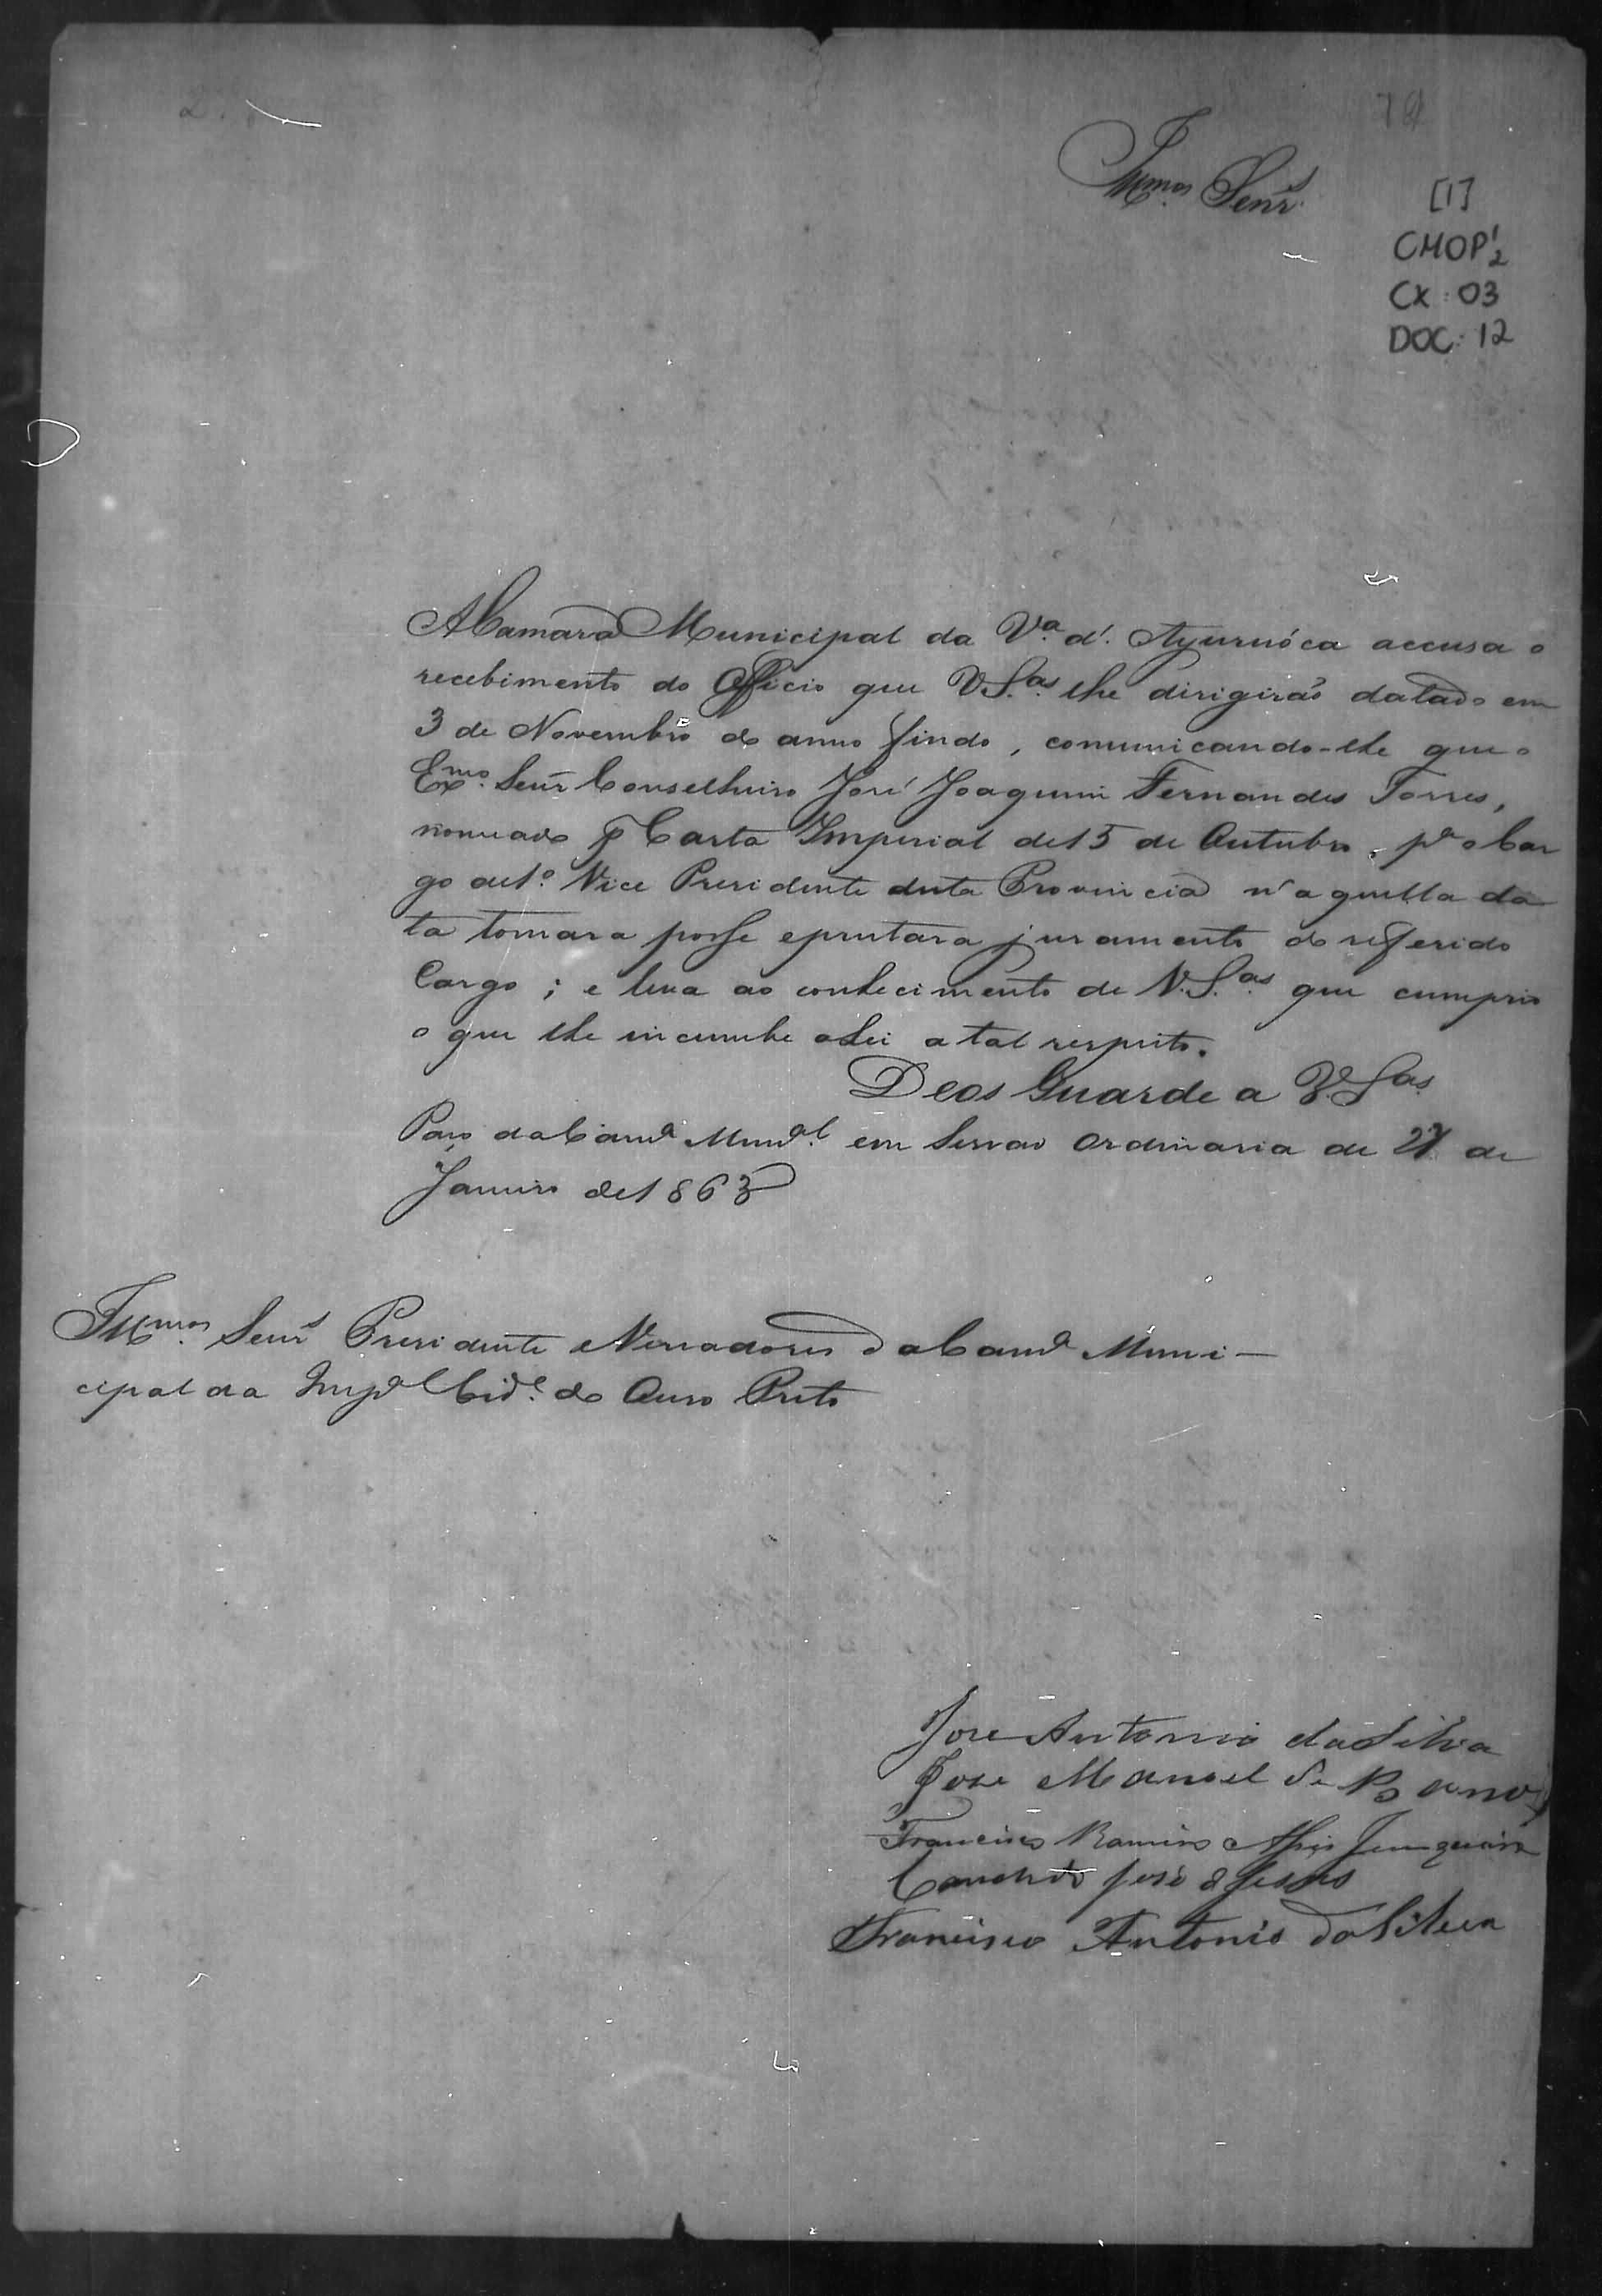 Illmos Senrs
[1]
CMOP 1/2
CX: 03
DOC: 12
A Camara Municipal da Va. d'. Ayuruóca accusa o
recebimento do Officio que V.Sas. lhe dirigirão datado em
3 de Novembro do anno findo, comunicando-lhe que o
Exmo. Senr Conselheiro José Joaquim Fernandes Torres,
nomeado p Carta Imperial de 15 de Outubro, pa o Car
go de 1º. Vice Presidente desta Provincia n'aquella da
ta tomara posse e prestara juramento do referido
Cargo; e leva ao conhecimento de V.Sas. que cumprio
o que lhe incumbe a Lei a tal respeito.
Deos Guarde a V.Sas.
Paço da Camª Munal. em Sessão Ordinaria de de
Janeiro de 1863
Illmos. Senrs Presidente e Veriadores da Camª Muni-
cipal da Impal Cide. do Ouro Preto
Jose Antonio da Silva
Jose Manoel de
Francisco Ramiro Junqueira
Candido José de Jesus
Francisco Antonio da Silva